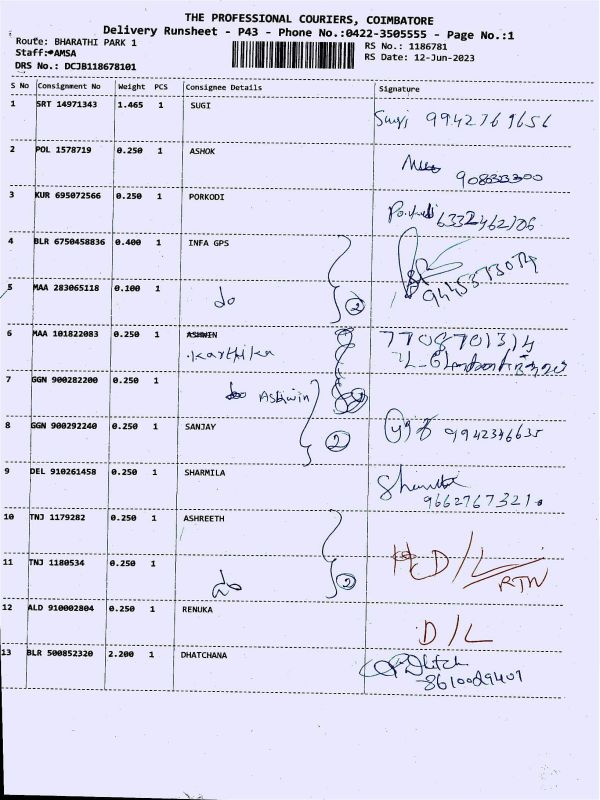 THE PROFESSIONAL COURIERS, COIMBATORE
Delivery Runsheet - P43 - Phone No.:0422-3505555 - Page No.:1
Route: BHARATHI PARK 1 RS No.: 1186781
Staff:*AMSA RS Date: 12-Jun-2023
DRS No.: DCJB118678101
S No Consignment No Weight PCS Consignee Details Signature
1 SRT 14971343 1.465 1 SUGI
Sugi 9942769656
2 POL 1578719 0.250 1 ASHOK
3 KUR 695072566 0.250 1 PORKODI
6332462706
4 BLR 6750458836 0.400 1 INFA GPS
5 MAA 283065118 0.100 1
do 2
6 MAA 101822083 0.250 1 ASHWIN
Karthika
7 GGN 900282200 0.250 1
do Ashwin
8 GGN 900292240 0.250 1 SANJAY
2 9942346635
9 DEL 910261458 0.250 1 SHARMILA
9662767321.
10 TNJ 1179282 0.250 1 ASHREETH
D/L
11 TNJ 1180534 0.250 1
do 2 RTN
12 ALD 910002804 0.250 1 RENUKA
D/L
13 BLR 500852320 2.200 1 DHATCHANA